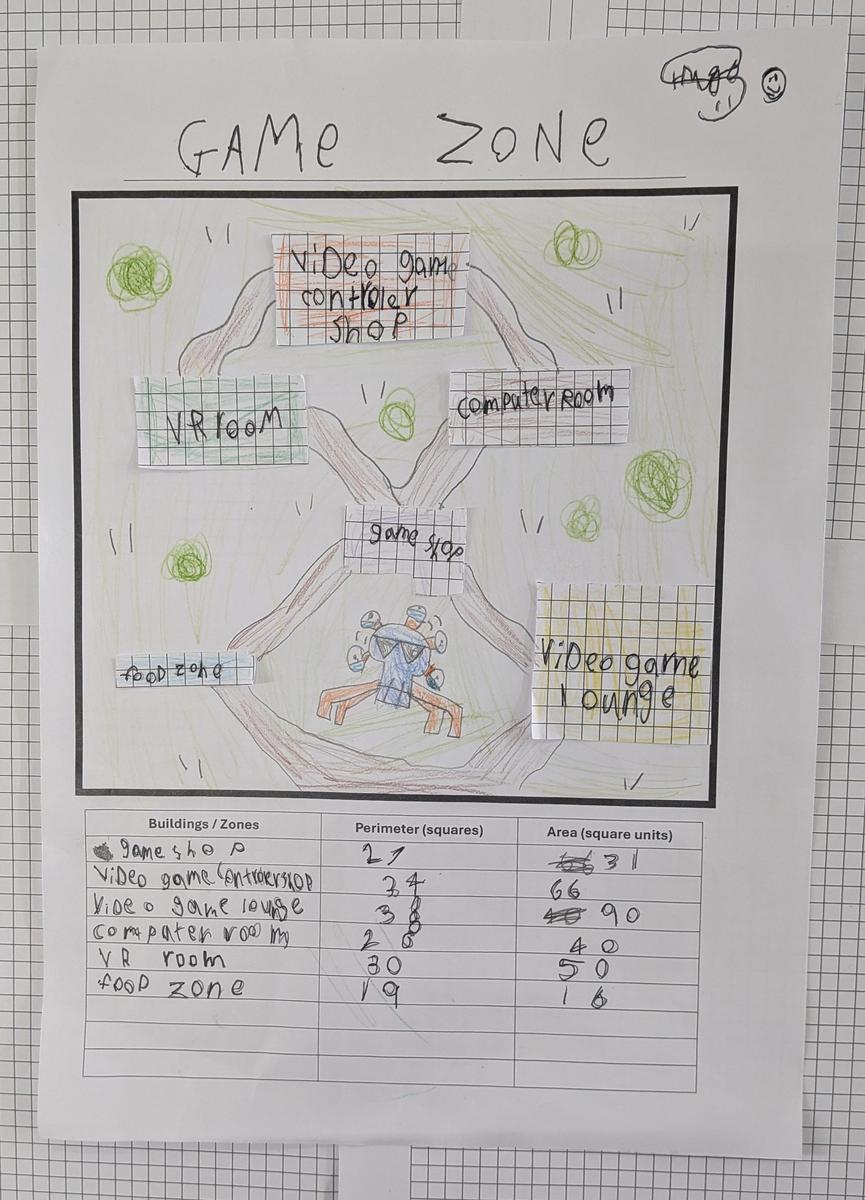 GAMe ZONe
ViDeo game
controler
shop
VR room
computer room
game
food zone
ViDeo game
lounge
Buildings / Zones Perimeter (squares) Area (square units)
game shop 27 31
ViDeo game 34 66
ViDeo game lounge 38 90
computer room 26 40
VR room 30 50
food zone 19 16